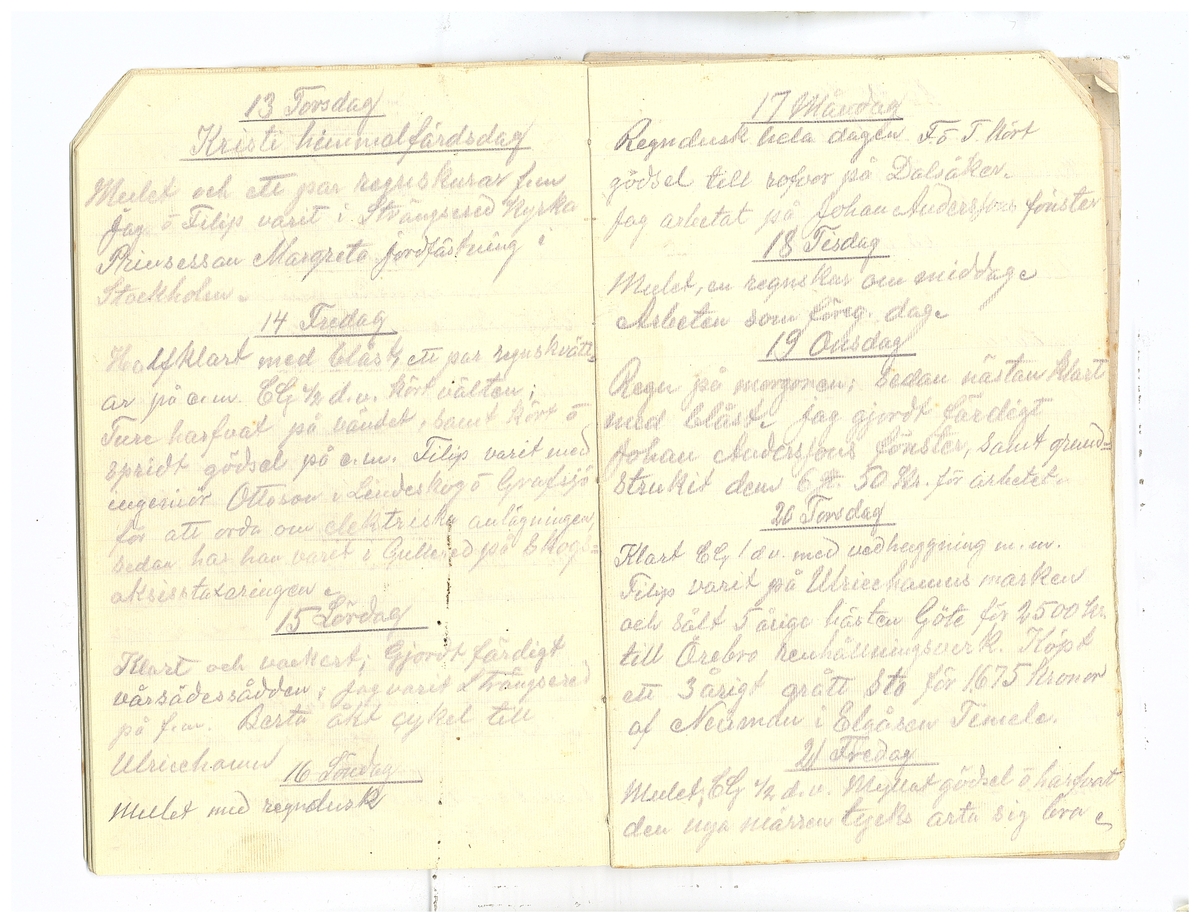 13 Torsdag
Kristi himmalfärdsdag
Mulet och ett par regnskurar f.m
Jag ö Filip varit i Strängsered Kyrka
Prinsessan Margreta jordfästning i
Stockholm.
14 Fredag
Halfklart med blåst, ett par regnskvätt=
ar på e.m. EG ½ d.v. Kört välten;
Ture harfvat på vändet, samt kört ö
spridt gödsel på e.m. Filip varit med
ingeniör Ottoson i Lindeskog ö Grafsjö
för att orda om elektriska anlägningen,
sedan har han varit i Gullered på Skogs=
aksisstaxaringen.
15 Lördag
Klart och vackert; Gjordt färdigt
vårsädessådden; Jag varit Strängsered
på f.m. Berta åkt cykel till
Ulricehamn
16 Söndag
Mulet med regndusk
17 Måndag
Regndusk hela dagen F. ö T. kört
gödsel till rofvor på Dalsåker.
Jag arbetat på Johan Anderssons fönster
18 Tisdag
Mulet, en regnskur om middag.
Arbeten som föreg. dag.
19 Onsdag
Regn på morgonen; Sedan nästan klart
med blåst. jag gjordt färdigt
Johan Anderssons fönster, samt grund=
strukit dem 6 st. 50 Kr. för arbetet.
20 Torsdag
Klart EG 1 d.v. med vedhuggning m.m.
Filip varit på Ulricehamns marken
och sålt 5 åriga hästen Göte för 2500 kr.
till Örebro renhållningsverk. Köpt
ett 3 årigt grått Sto för 1,675 kronor
af Neuman i Elgåsen Timele.
21 Fredag
Mulet, EG ½ d.v. Myllat gödsel ö harfvat
den nya märren tycks arta sig bra